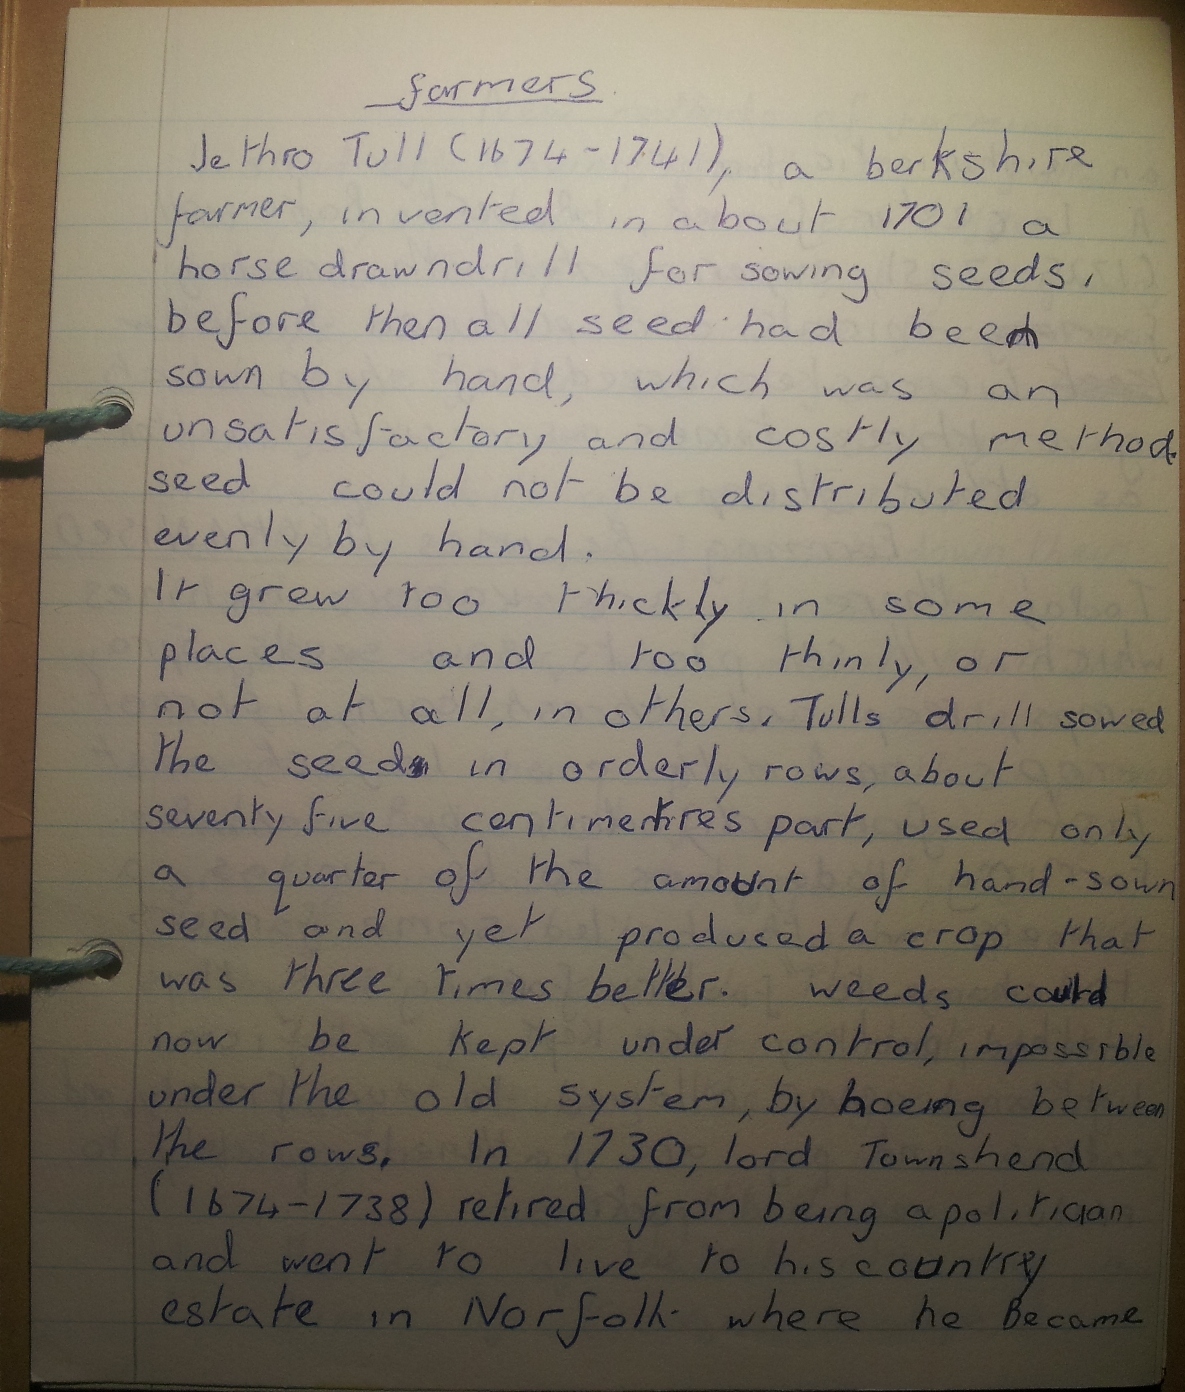 farmers
Jethro Tull (1674-1741), a berkshire
farmer, invented in about 1701 a
horse drawndrill for sowing seeds.
before then all seed had been
sown by hand, which was an
unsatisfactory and costly method.
seed could not be distributed
evenly by hand.
It grew too thickly in some
places and too thinly, or
not at all, in others. Tulls drill sowed
the seeds in orderly rows, about
seventy five centimentres part, used only
a quarter of the amount of hand-sown
seed and yet produced a crop that
was three times better. weeds could
now be kept under control, impossible
under the old system, by hoeing between
the rows. In 1730, lord Townshend
(1674-1738) retired from being a politician
and went to live to his country
estate in Norfolk where he Became